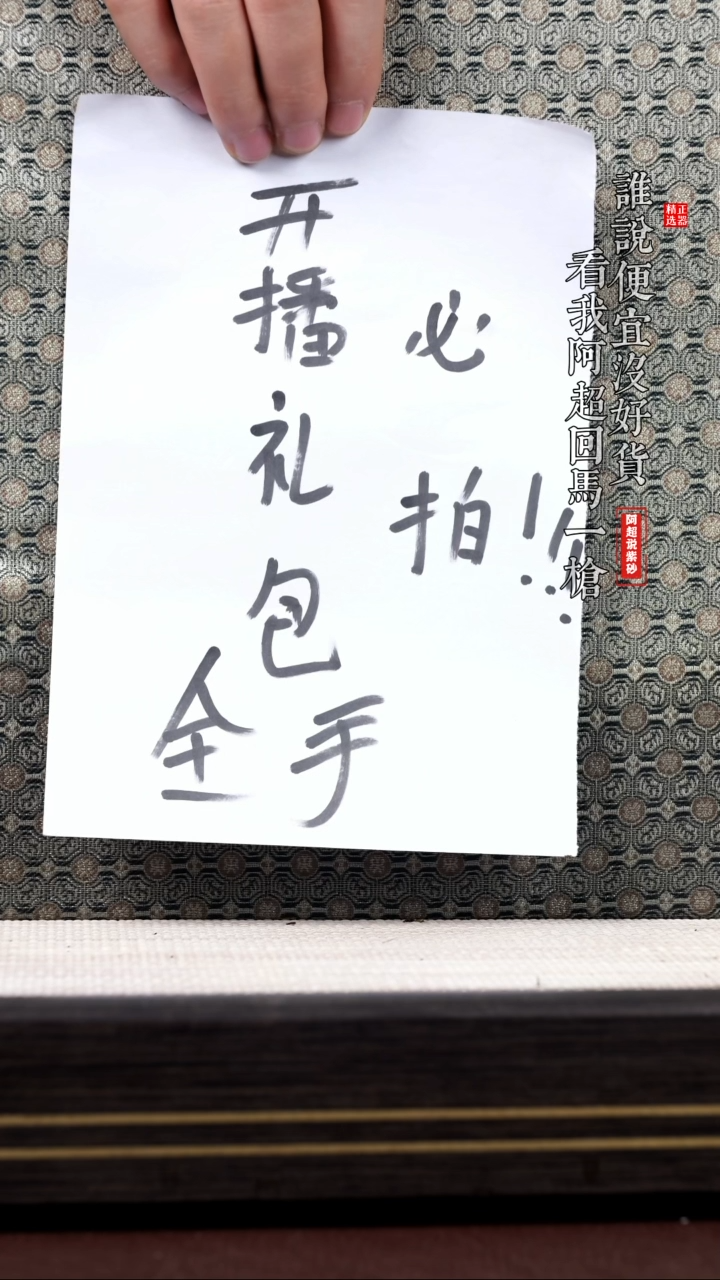 开播礼包
全手
必拍!!
誰說便宜沒好貨
看我阿超回馬一槍
正器
精选
阿超说紫砂